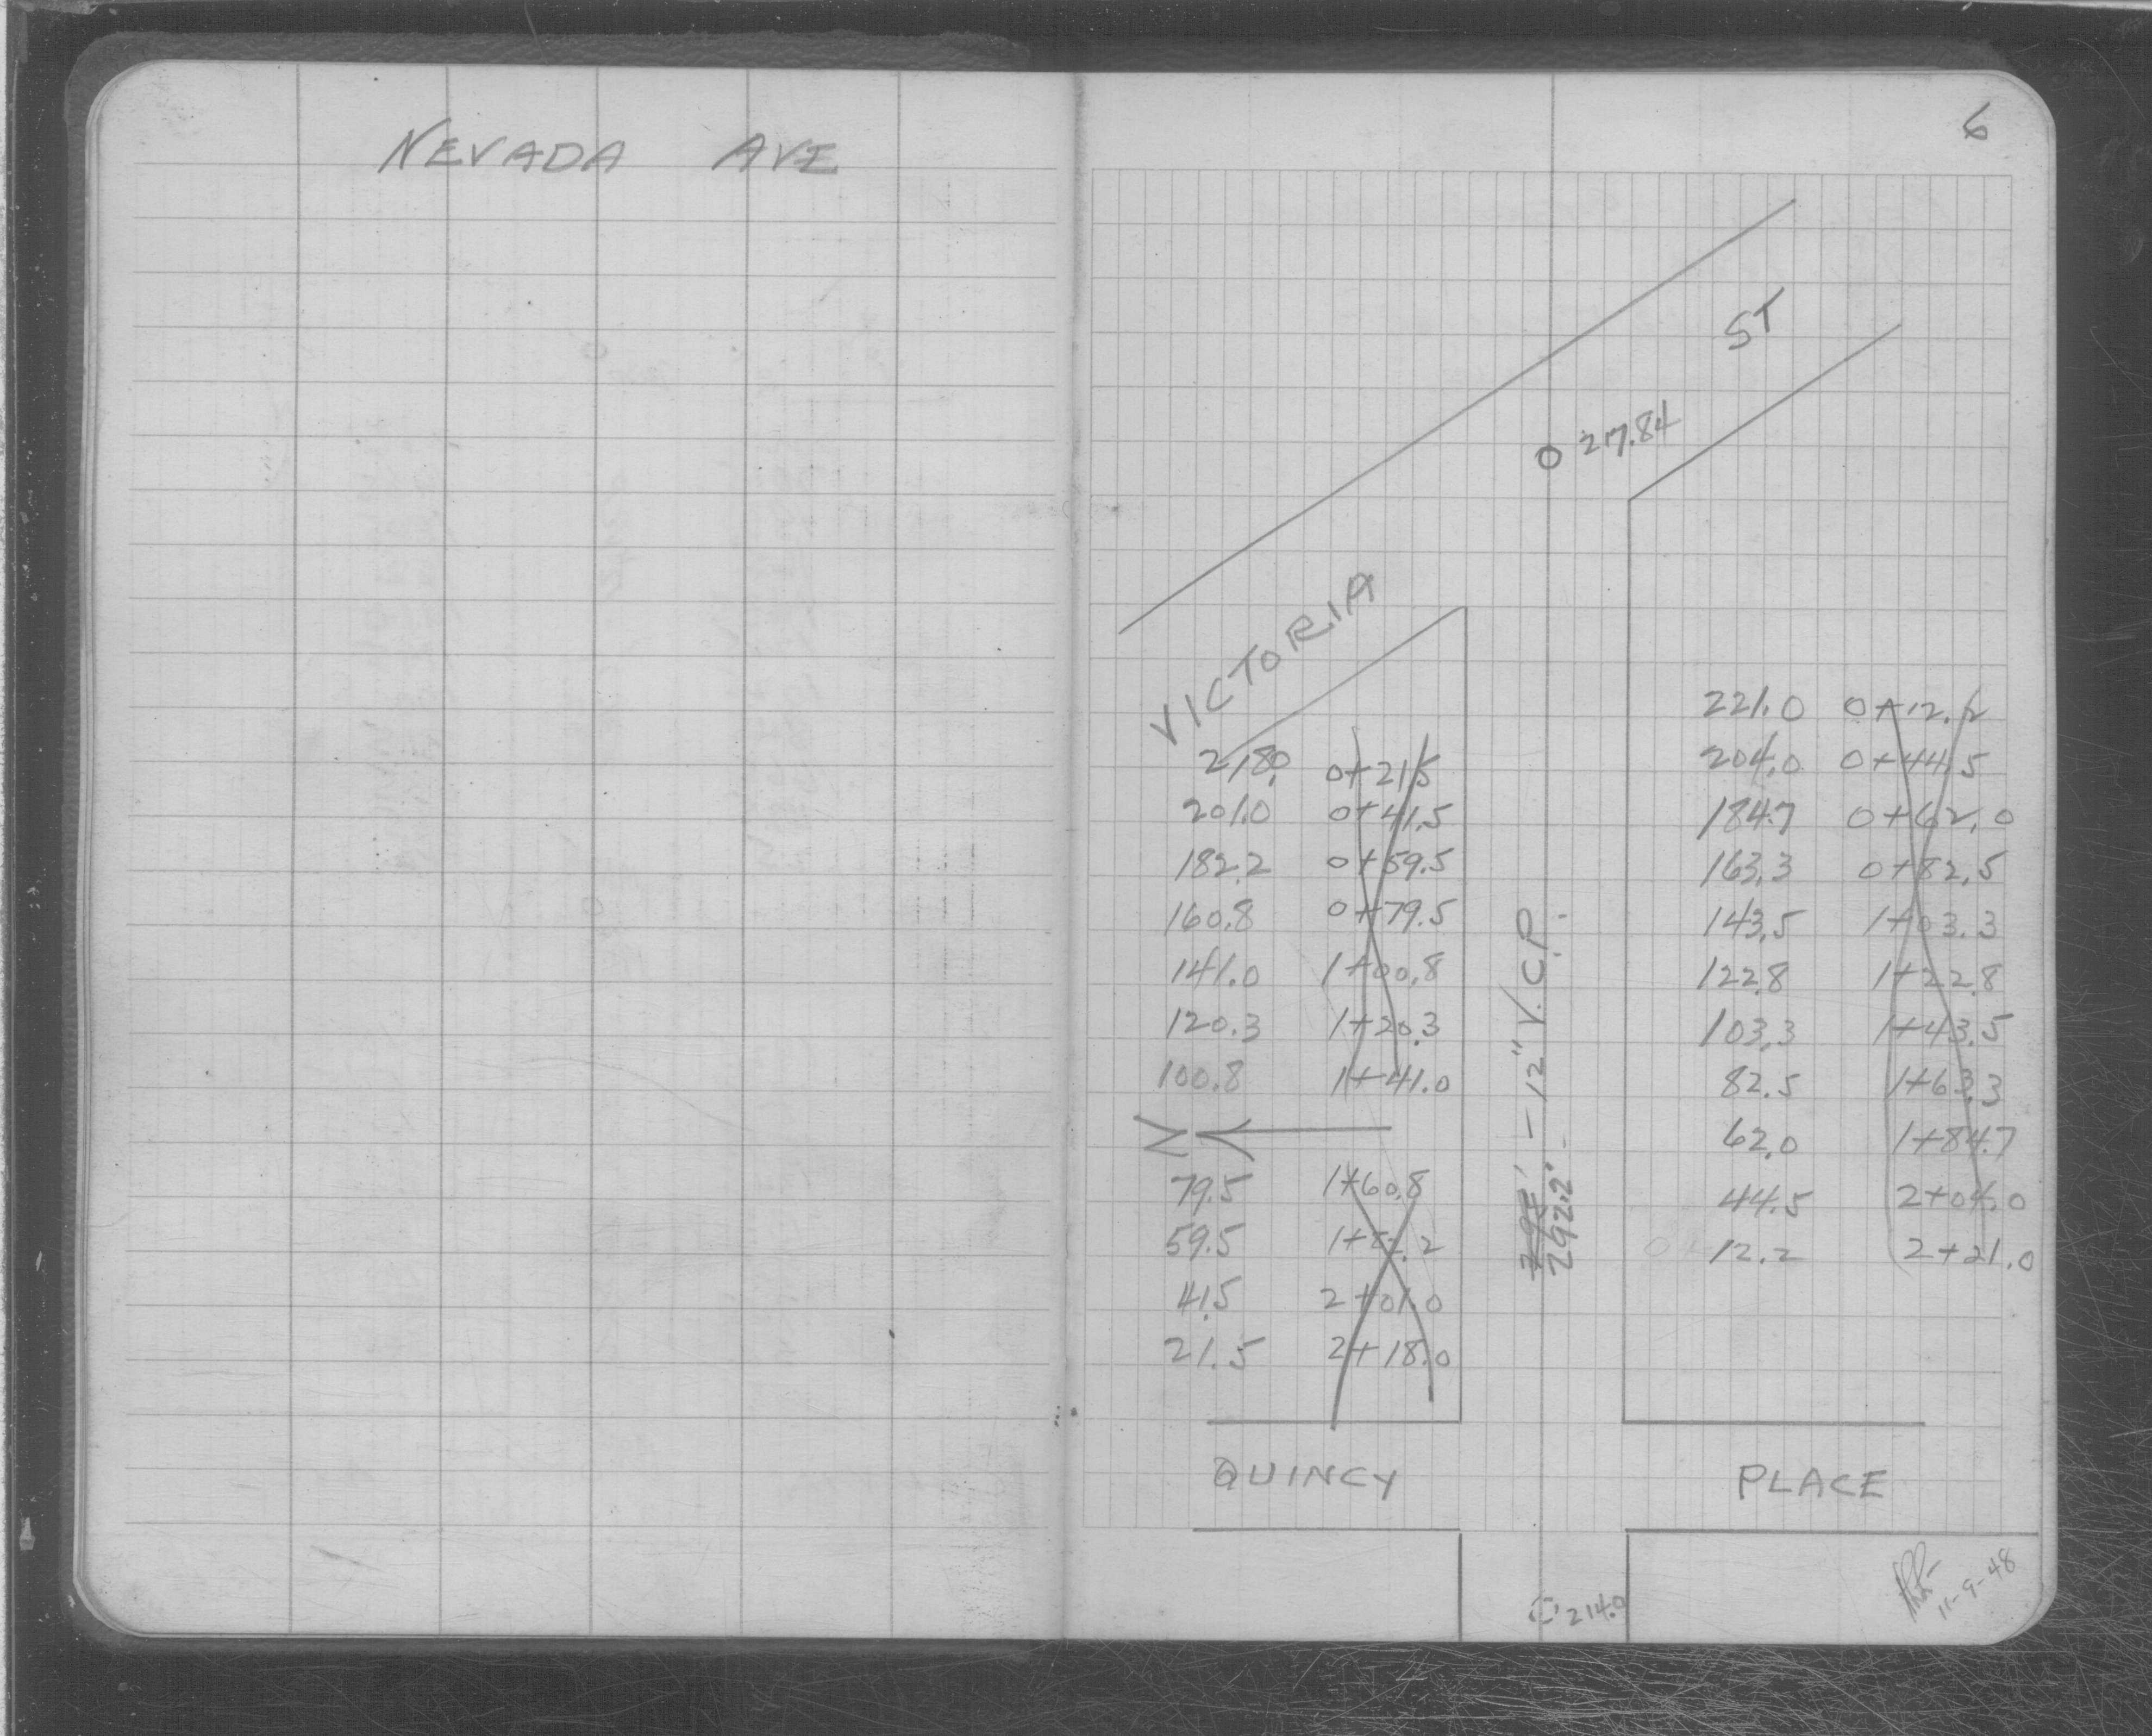 NEVADA AVE
6
ST
217.84
VICTORIA
218.0 0+21.5
201.0 0+41.5
182.2 0+59.5
160.8 0+79.5
141.0 1+00.8
120.3 1+20.3
100.8 1+41.0
79.5 1+60.8
59.5 1+82.2
41.5 2+01.0
21.5 2+18.0
292.2' - 12" V.C.P.
221.0 0+12.2
204.0 0+44.5
184.7 0+62.0
163.3 0+82.5
143.5 1+03.3
122.8 1+22.8
103.3 1+43.5
82.5 1+63.3
62.0 1+84.7
44.5 2+04.0
12.2 2+21.0
QUINCY PLACE
214.9
11-9-48